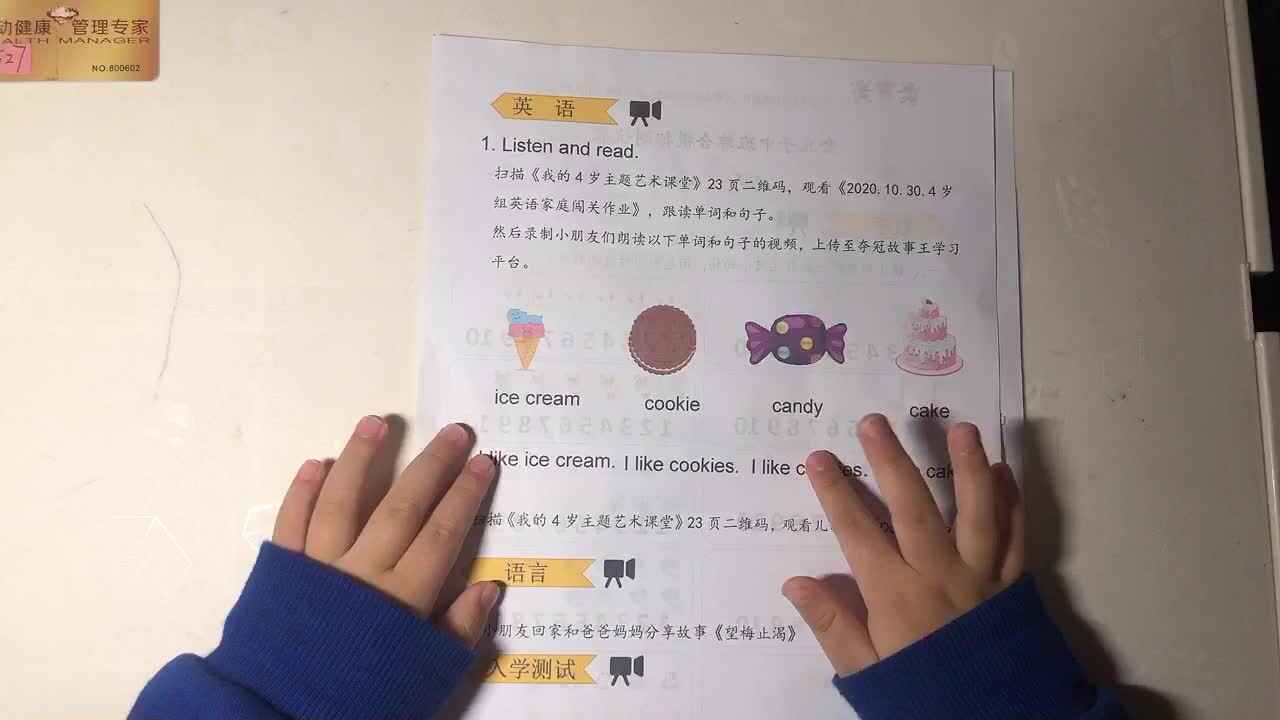 动健康 管理专家
ALTH MANAGER
527
NO.800602
英 语
1. Listen and read.
扫描《我的4岁主题艺术课堂》23页二维码，观看《2020.10.30.4岁
组英语家庭闯关作业》，跟读单词和句子。
然后录制小朋友们朗读以下单词和句子的视频，上传至夺冠故事王学习
平台。
ice cream cookie candy cake
like ice cream. I like cookies. I like
扫描《我的4岁主题艺术课堂》23页二维码，观看儿
语言
小朋友回家和爸爸妈妈分享故事《望梅止渴》
入学测试